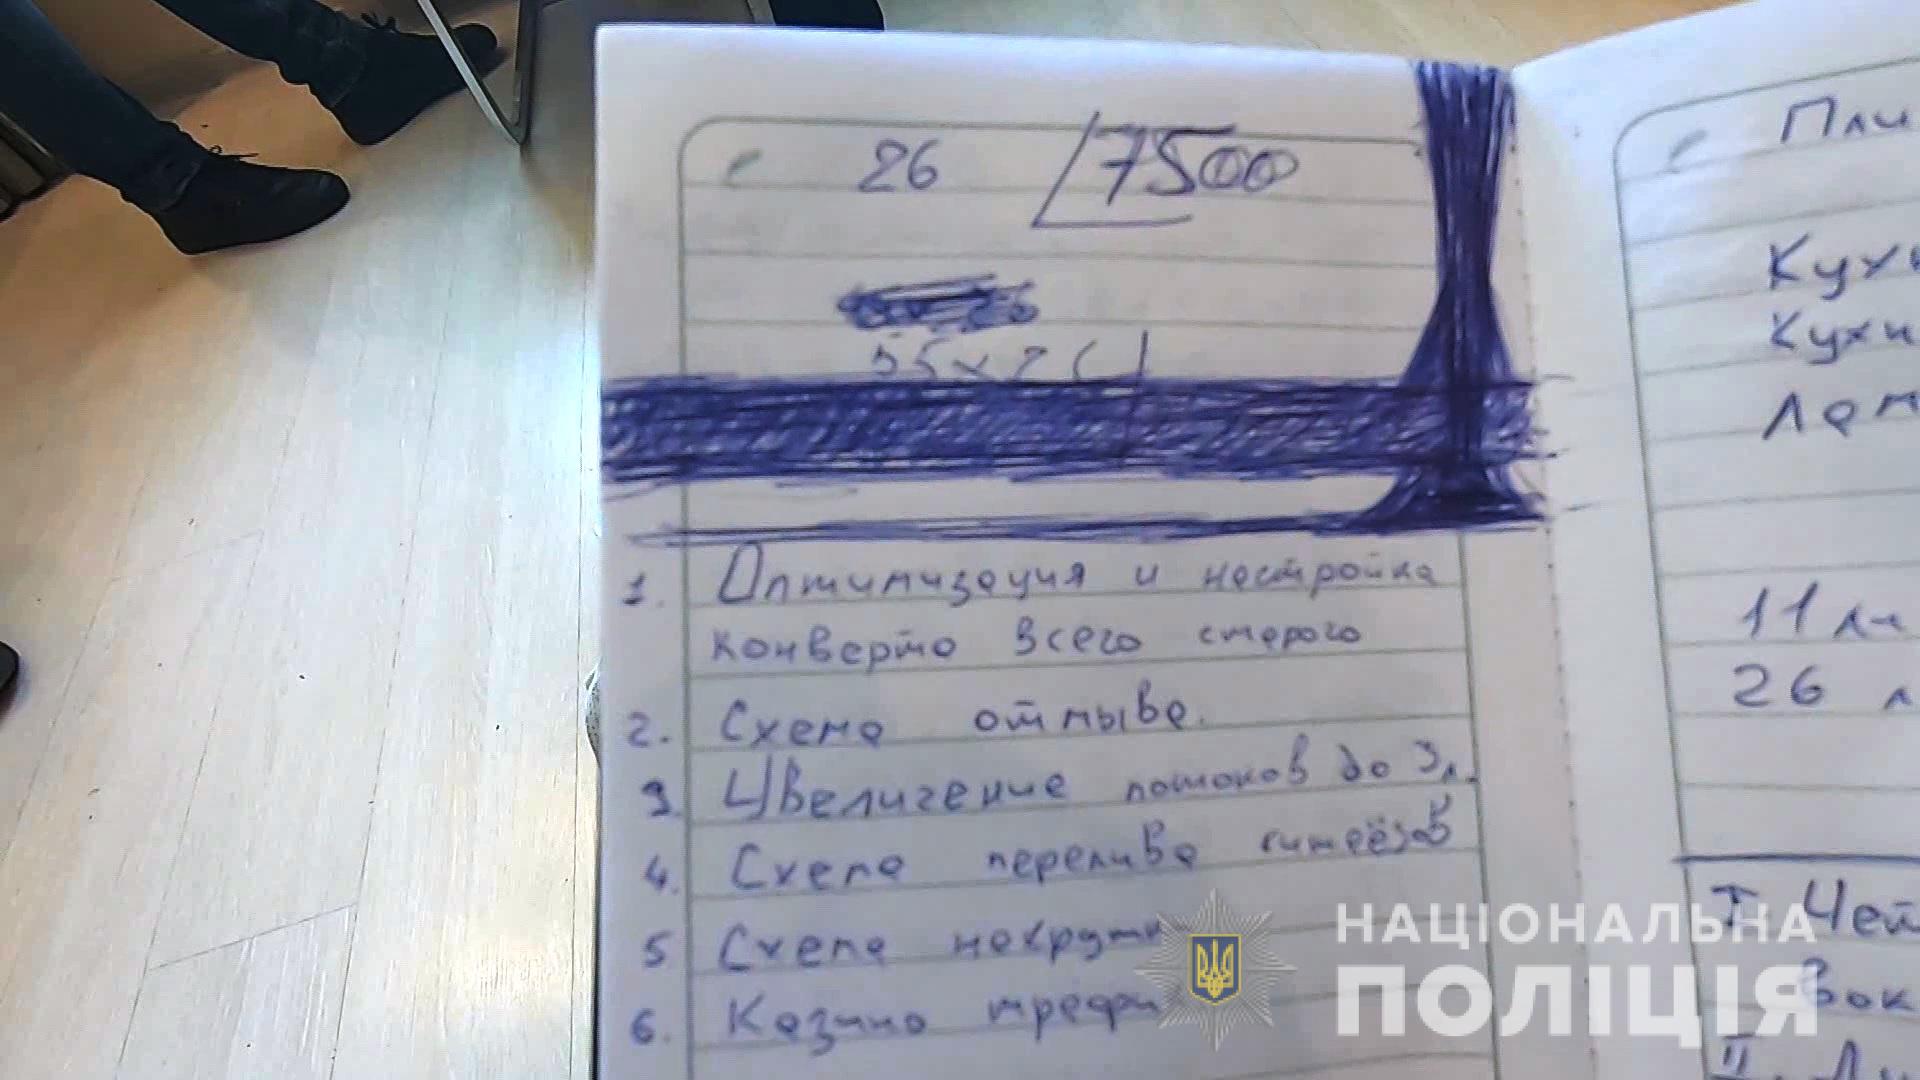 26 7500
1. Оптимизация и настройка
конверто всего старого
2. Схема отмыва.
3. Увеличение потоков до 3л.
4. Схема перелива
5 Схема
6. Казино
Кух
Кухн
Лам
11 лч
26 л
I. Чет
Вок
II.
НАЦІОНАЛЬНА
ПОЛІЦІЯ